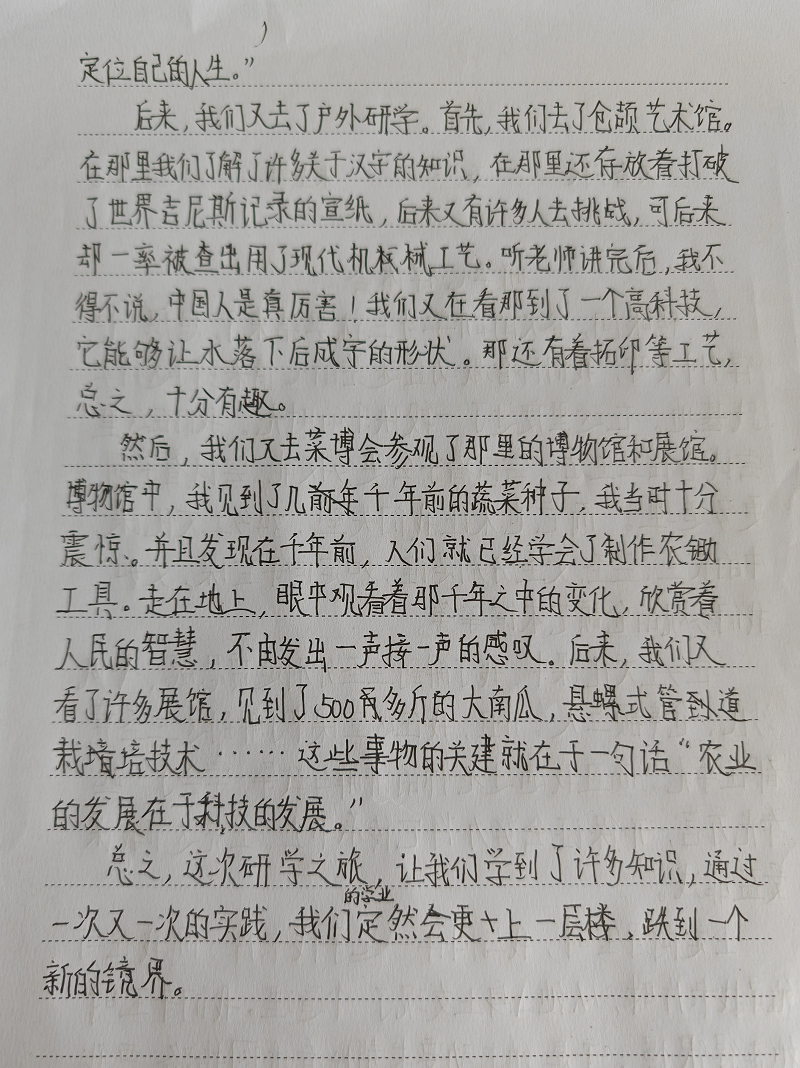 定位自己的人生。”
后来，我们又去了户外研学。首先，我们去了仓颉艺术馆。
在那里我们了解了许多关于汉字的知识，在那里还存放着打破
了世界吉尼斯记录的宣纸，后来又有许多人去挑战，可后来
却一率被查出用了现代机械工艺。听老师讲完后，我不
得不说，中国人是真厉害！我们又在看那到了一个高科技，
它能够让水落下后成字的形状。那还有着拓印等工艺，
总之，十分有趣。
然后，我们又去菜博会参观了那里的博物馆和展馆。
博物馆中，我见到了几千年前的蔬菜种子，我当时十分
震惊。并且发现在千年前，人们就已经学会了制作农锄
工具。走在地上，眼中观看着那千年之中的变化，欣赏着
人民的智慧，不由发出一声接一声的感叹。后来，我们又
看了许多展馆，见到了500多斤的大南瓜，悬螺式管到道
栽培技术……这些事物的关建就在于一句话“农业
的发展在于科技的发展。”
总之，这次研学之旅，让我们学到了许多知识，通过
一次又一次的实践，我们的学业定然会更上一层楼，跌到一个
新的镜界。